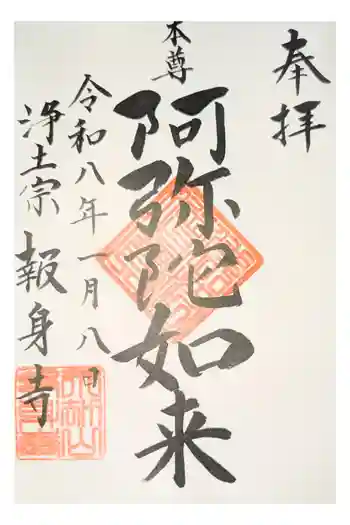 奉拝
本尊
阿弥陀如来
令和八年一月八日
浄土宗 報身寺